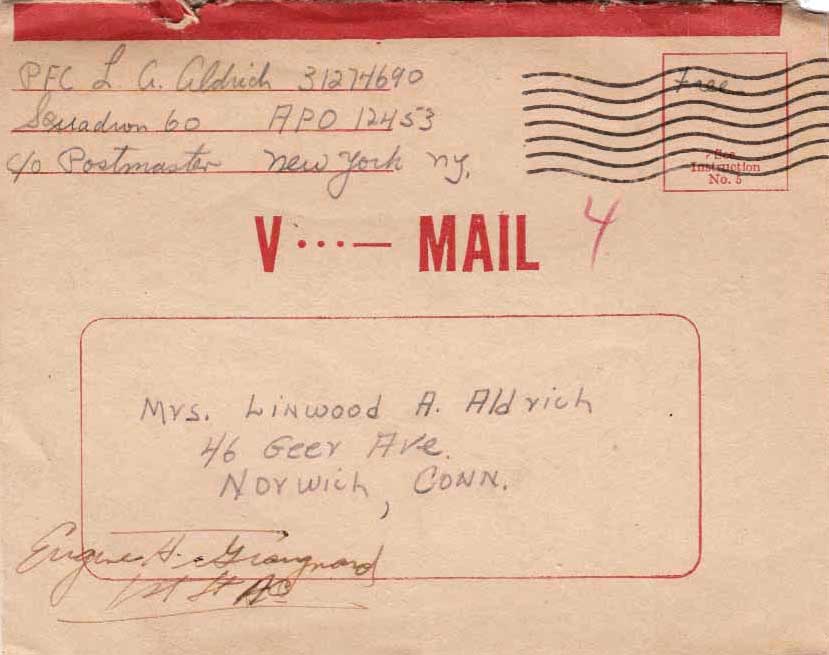 PFC L A. Aldrich 31274690
Squadron 60 APO 12453
c/o Postmaster New York NY.
Free
See
Instruction
No. 5
V ···— MAIL
4
Mrs. Linwood A. Aldrich
46 Geer Ave.
Norwich, Conn.
Eugene H.
1st Lt AC